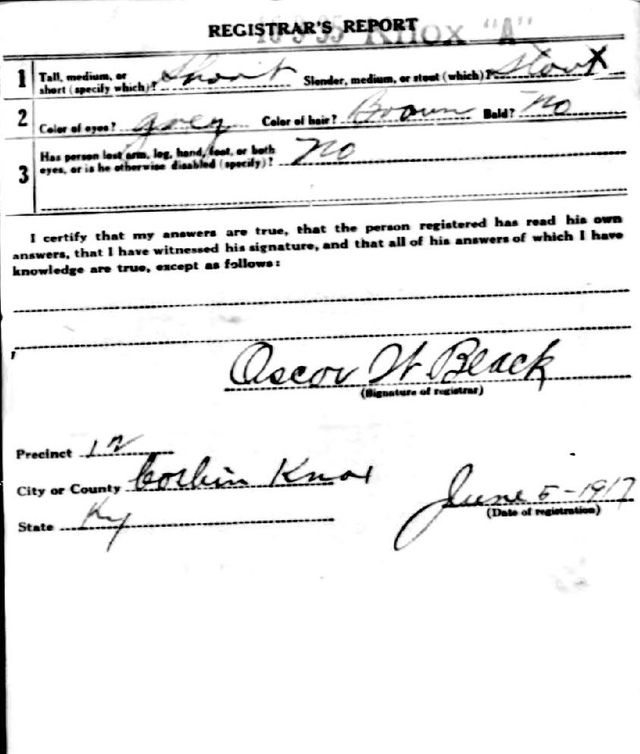 REGISTRAR'S REPORT
Knox "A"
1 Tall, medium, or short (specify which)? Short Slender, medium, or stout (which)? Stout
2 Color of eyes? grey Color of hair? Brown Bald? No
3 Has person lost arm, leg, hand, foot, or both eyes, or is he otherwise disabled (specify)? No
I certify that my answers are true, that the person registered has read his own
answers, that I have witnessed his signature, and that all of his answers of which I have
knowledge are true, except as follows:
Oscar W Black
(Signature of registrar)
Precinct 12
City or County Corbin Knox
State Ky
June 5-1917
(Date of registration)